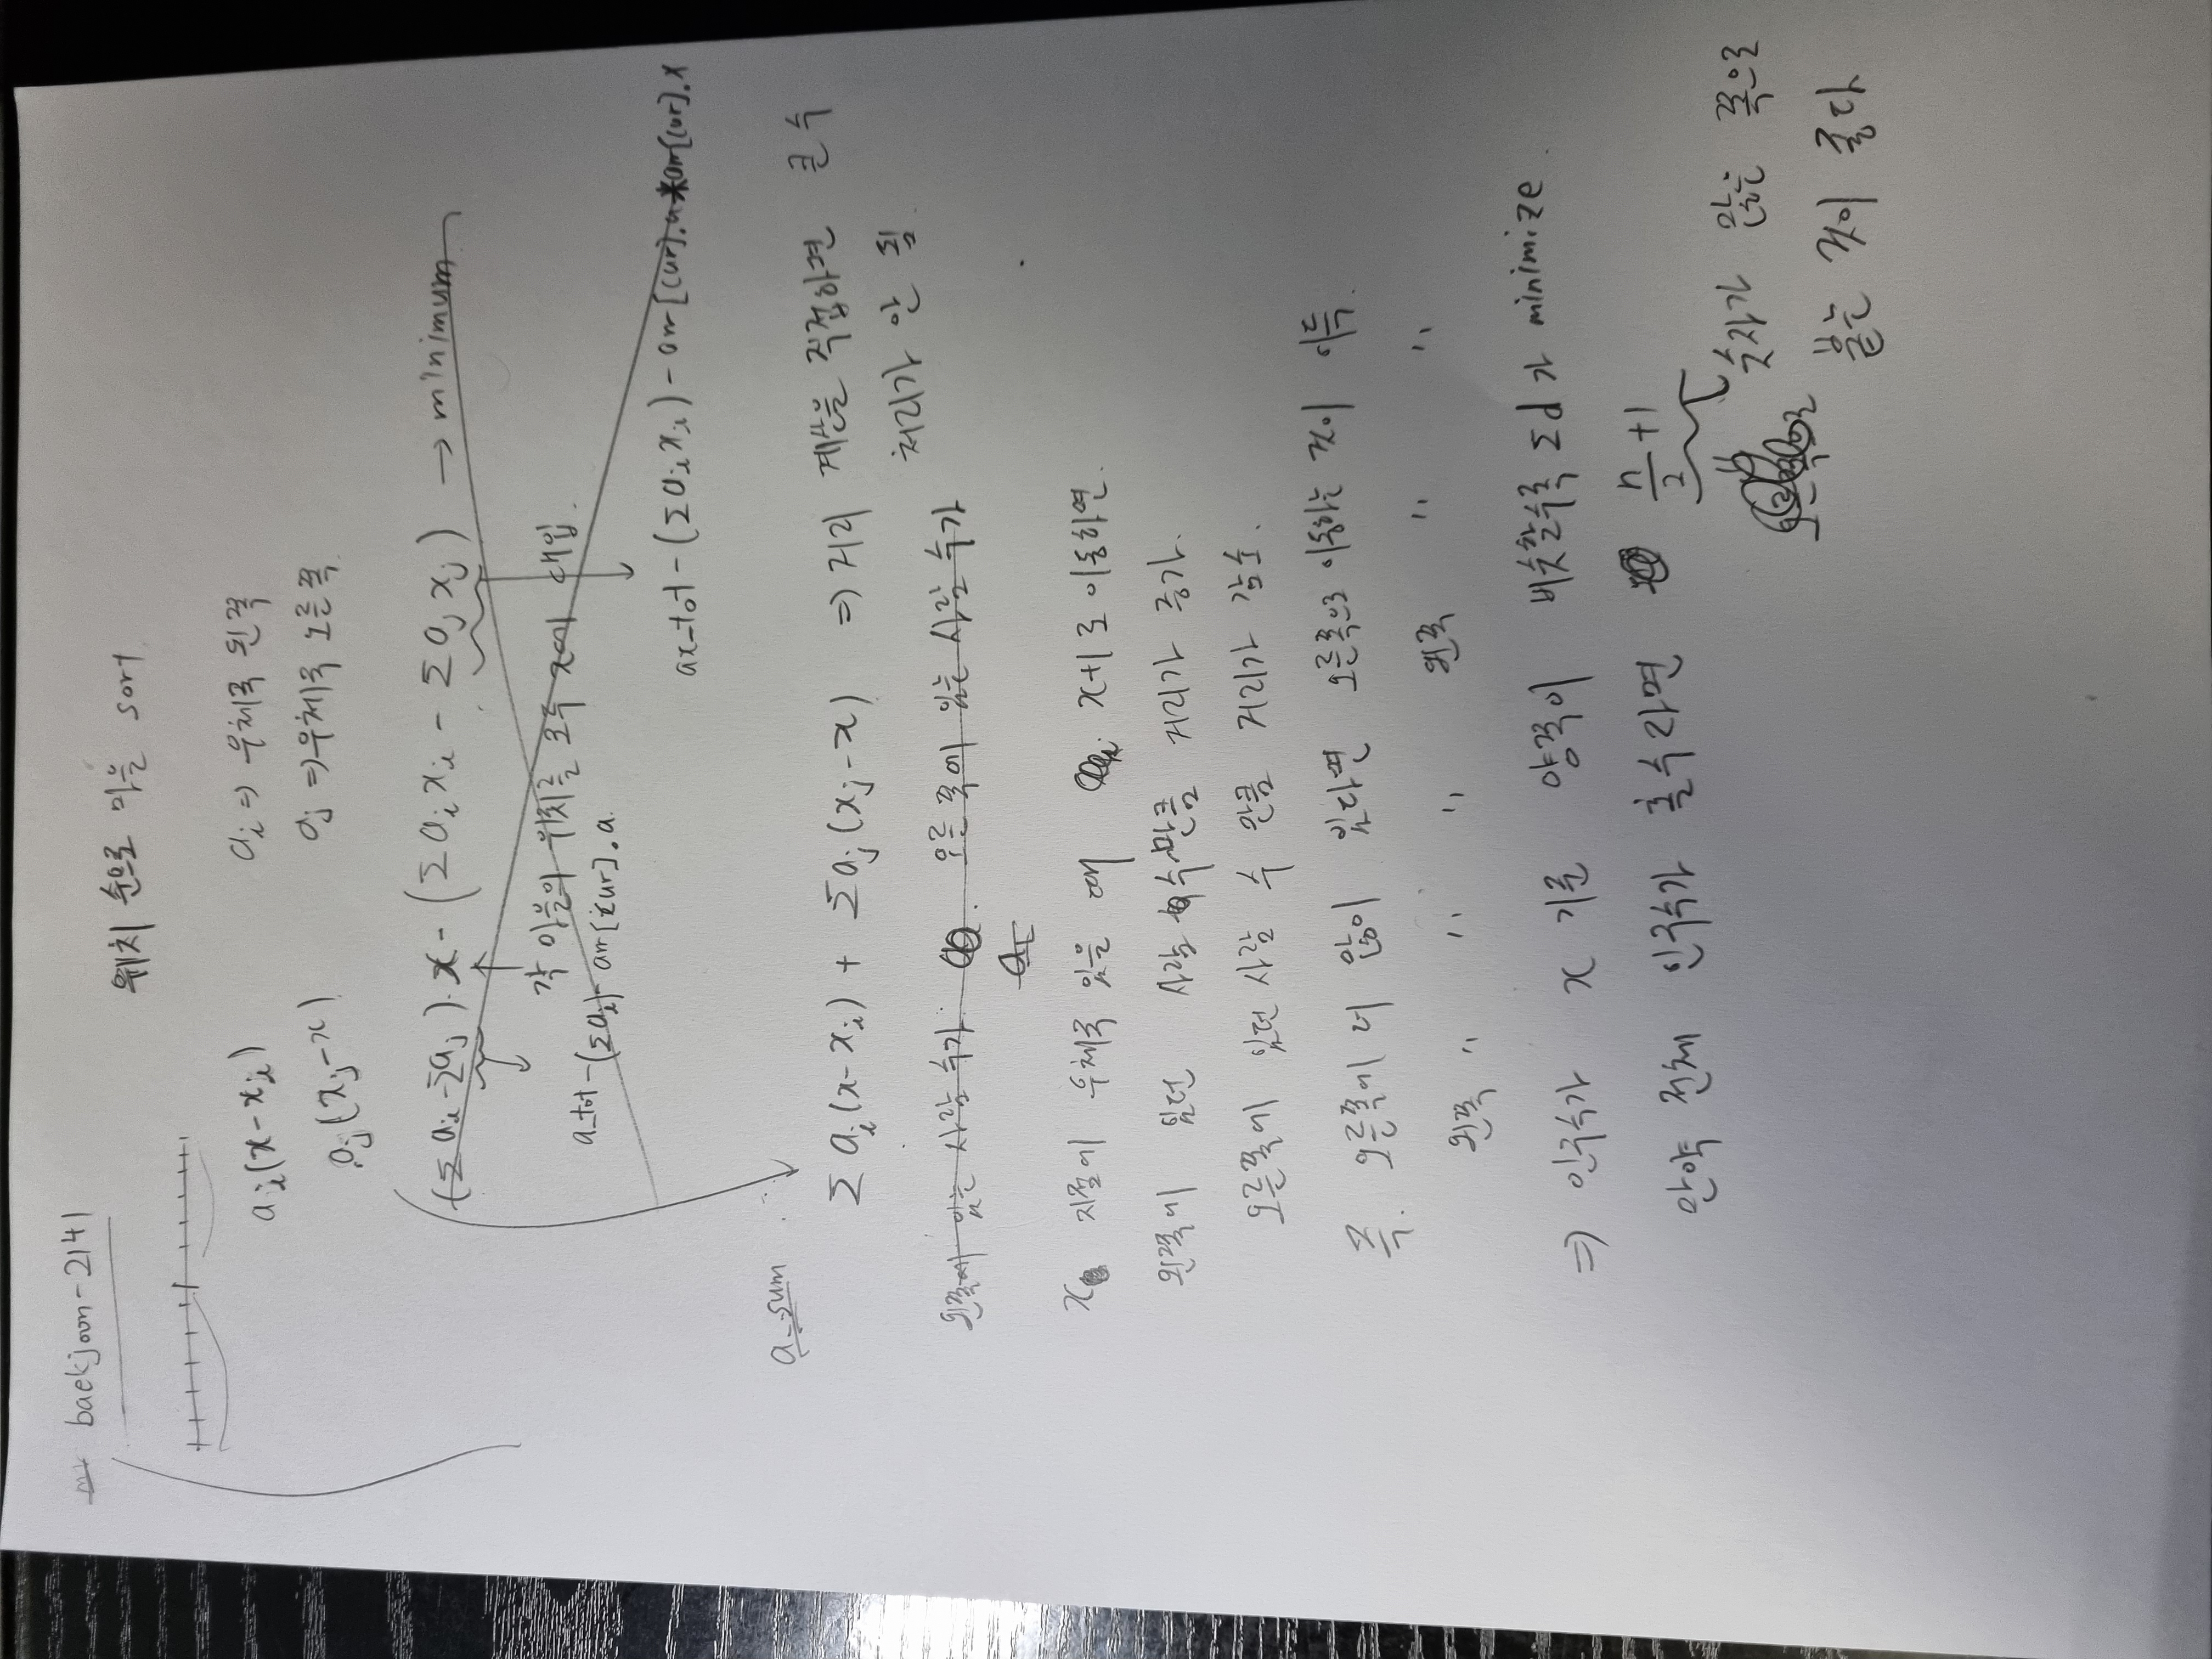 baekjoon-2141
위치 순으로 마을 sort
a_i(x-x_i) a_i => 우체국 왼쪽
a_j(x_j-x) a_j => 우체국 오른쪽
(Σa_i-Σa_j)·x-(Σa_i x_i - Σa_j x_j) → minimum
각 마을의 위치를 모두 x에 대입.
a_tot-(Σa_i)-arr[cur].a
ax_tot-(Σa_i x_i)-arr[cur].a*arr[cur].x
a_sum
Σa_i(x-x_i) + Σa_j(x_j-x) => 거리 계산을 직접하면 큰 수
처리가 안 됨.
왼쪽에 있는 사람 수가 오른쪽에 있는 사람 수가
x 지점에 우체국 있을 때 x+1로 이동하면.
왼쪽에 있던 사람 수만큼 거리가 증가.
오른쪽에 있던 사람 수 만큼 거리가 감소.
즉. 오른쪽에 더 많이 있다면 오른쪽으로 이동하는 것이 이득.
왼쪽 " " " 왼쪽 " "
=> 인구수가 x 기준 양쪽이 비슷할수록 Σd가 minimize.
만약 전체 인구수가 홀수라면 n/2+1
숫자가 많은 쪽으로
붙는 것이 좋다